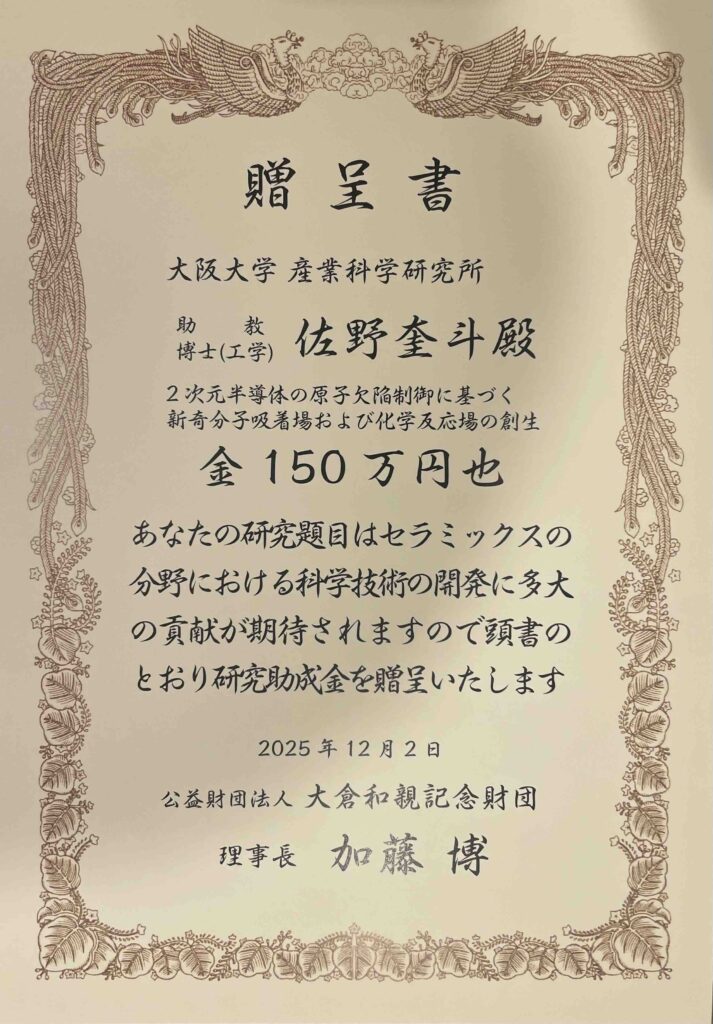 贈呈書
大阪大学 産業科学研究所
助教
博士(工学) 佐野奎斗殿
2次元半導体の原子欠陥制御に基づく
新奇分子吸着場および化学反応場の創生
金150万円也
あなたの研究題目はセラミックスの
分野における科学技術の開発に多大
の貢献が期待されますので頭書の
とおり研究助成金を贈呈いたします
2025年12月2日
公益財団法人 大倉和親記念財団
理事長 加藤 博